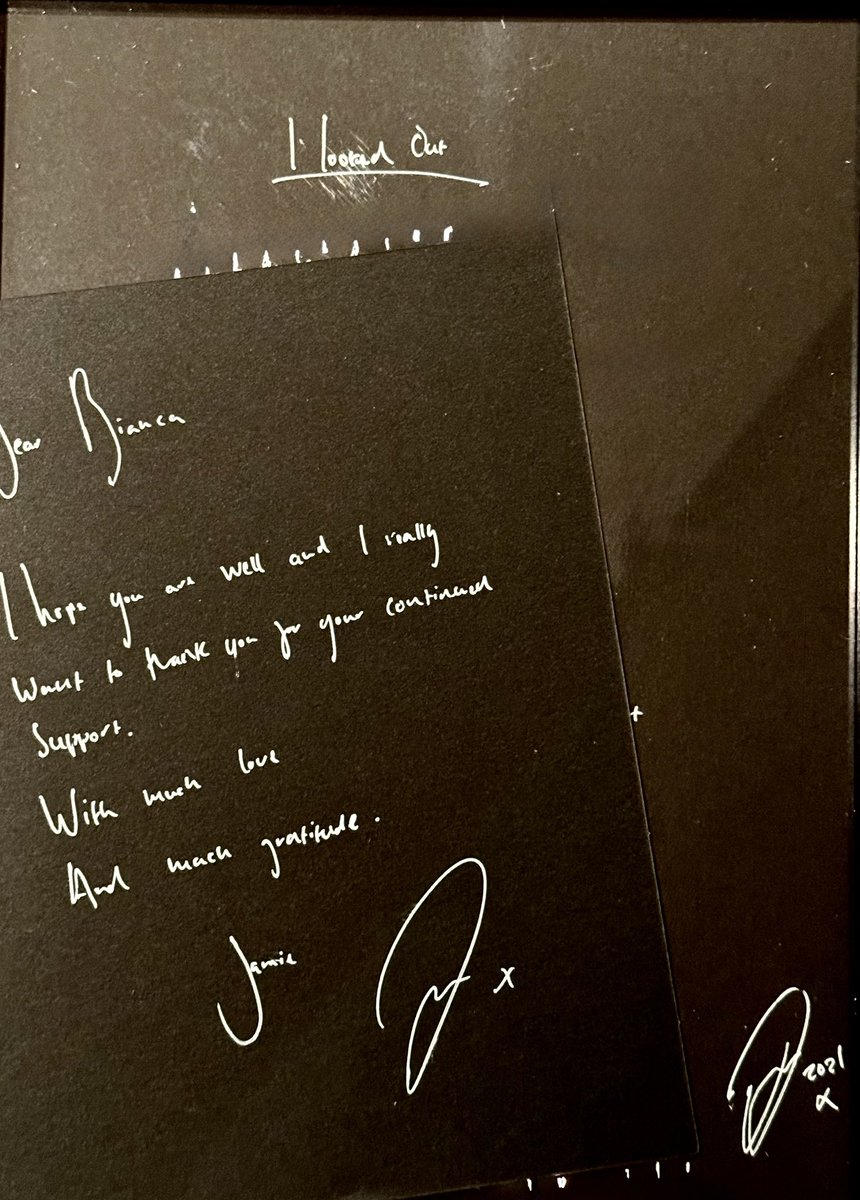 I looked Out
Dear Bianca
I hope you are well and I really
Want to thank you for your continued
Support.
With much love
And much gratitude.
Jamie
x
2021
x